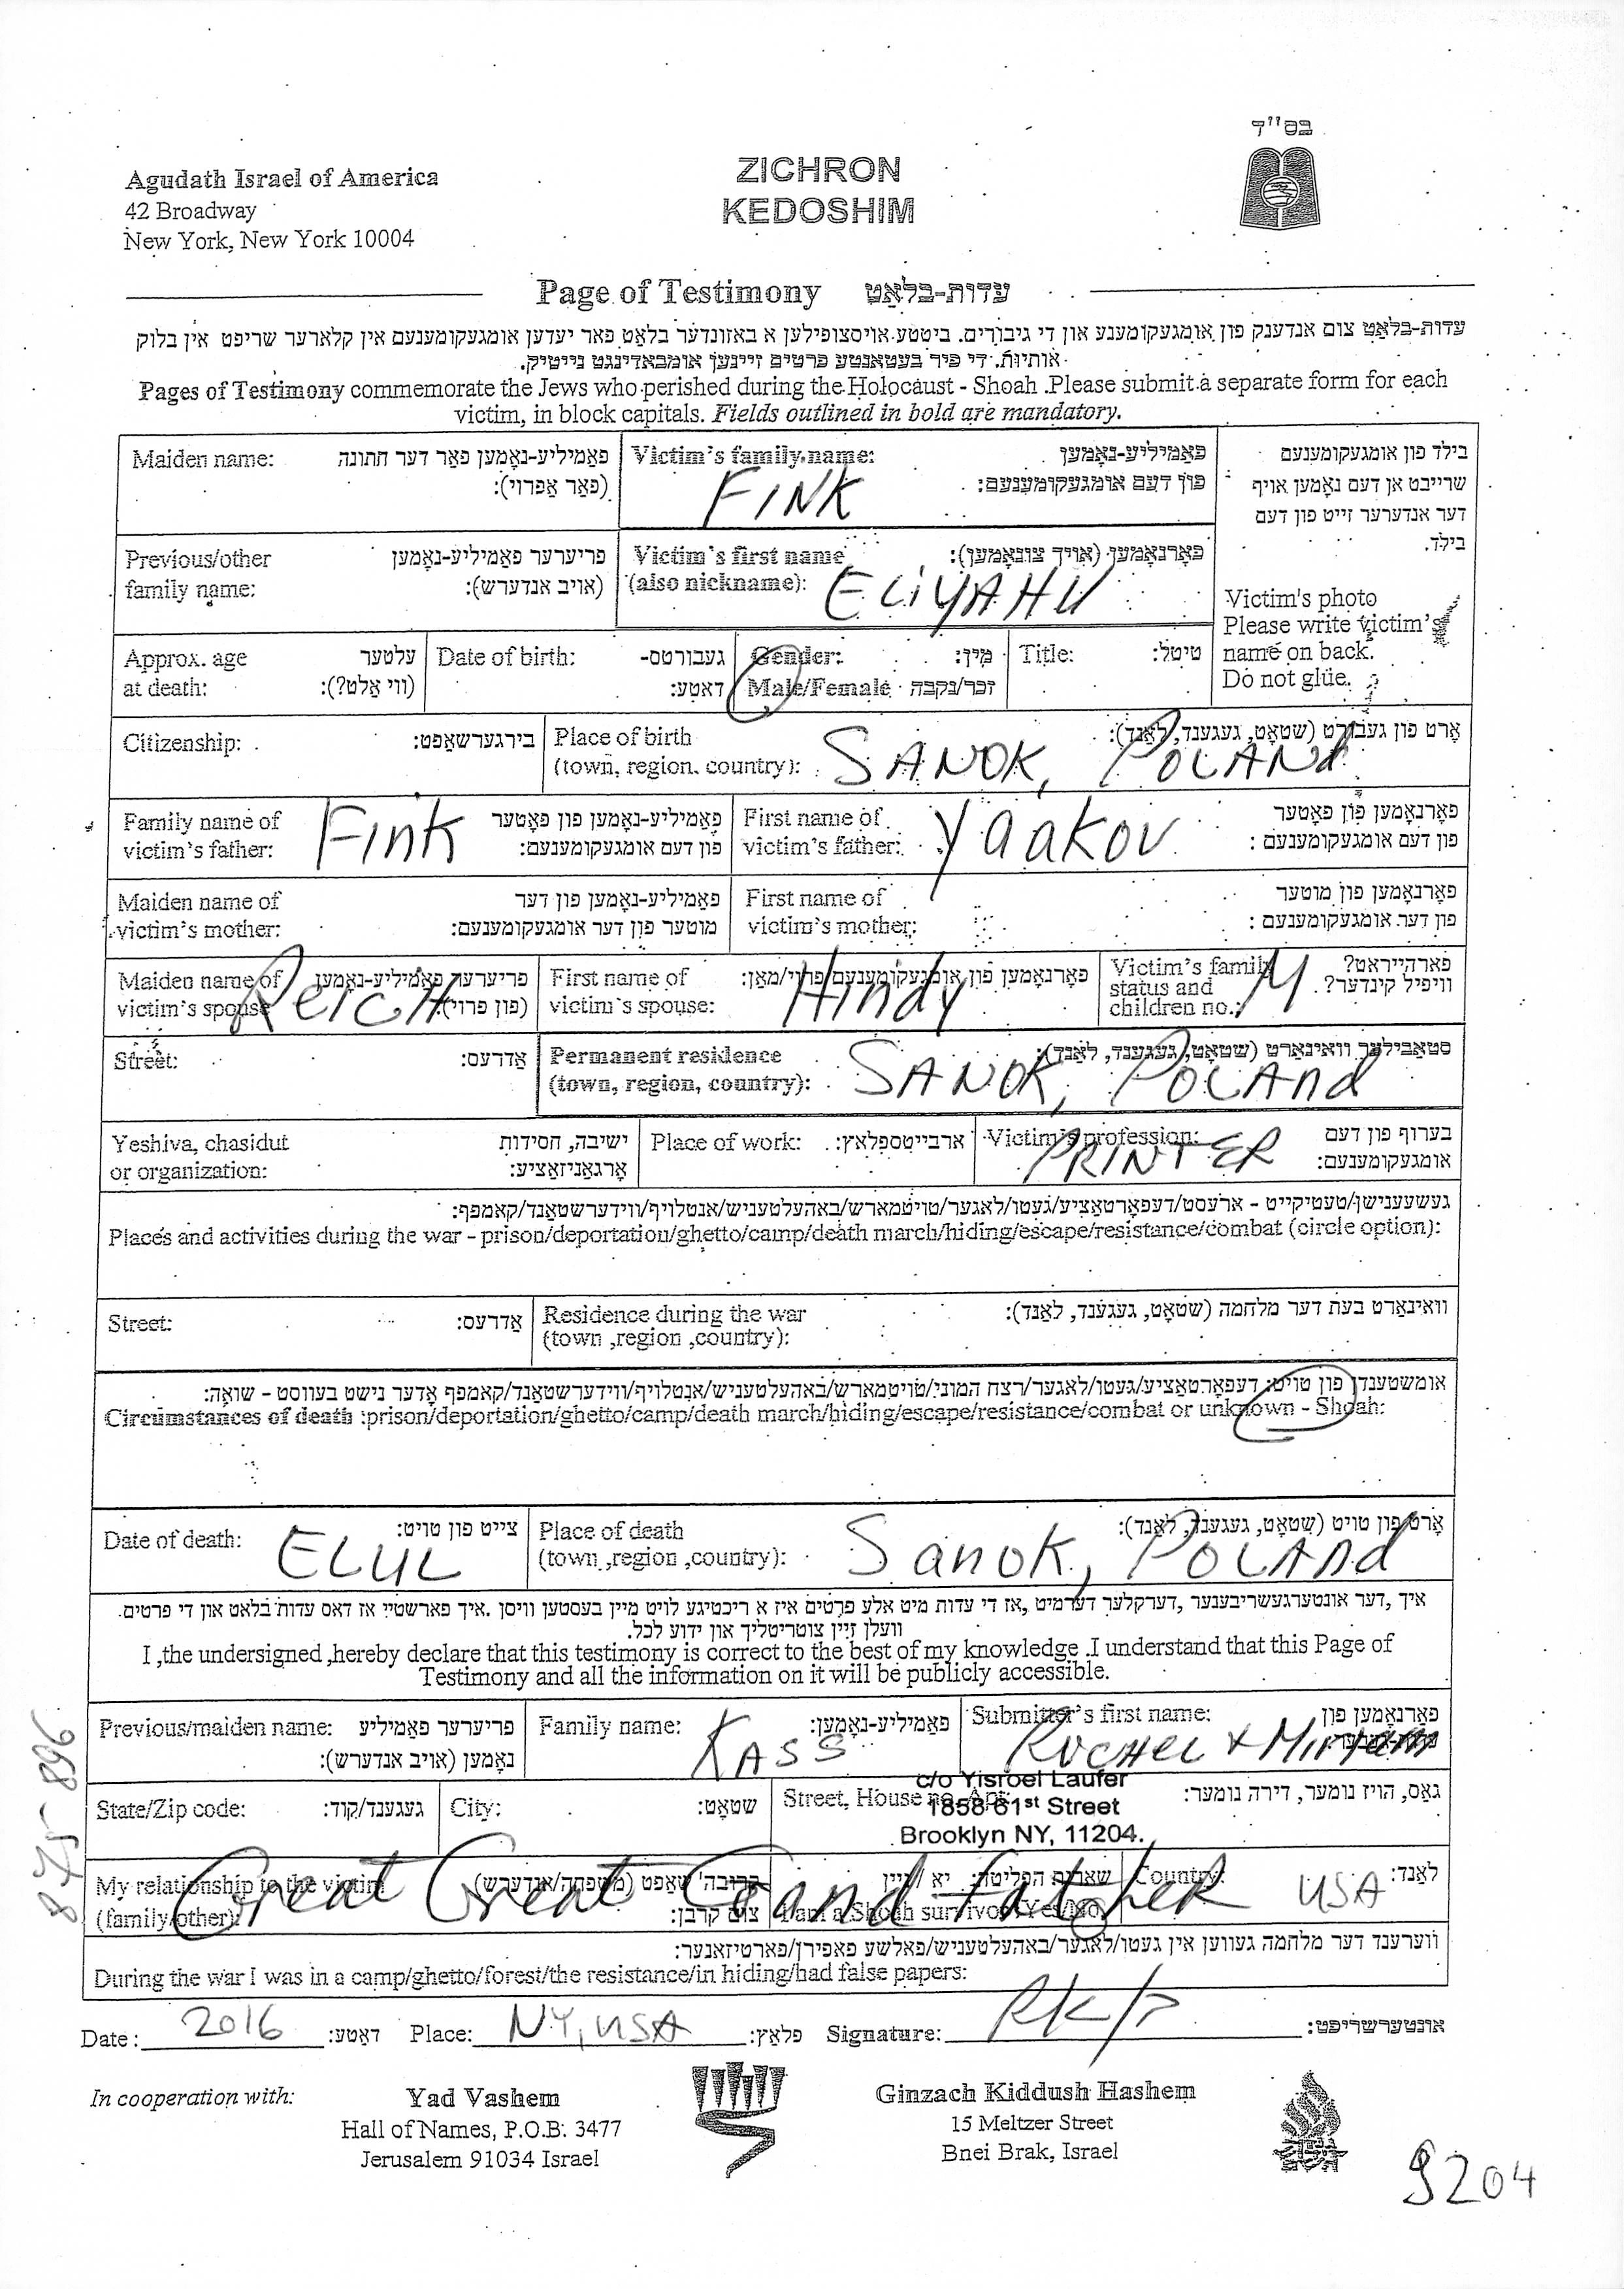 בס"ד
Agudath Israel of America
42 Broadway
New York, New York 10004
ZICHRON
KEDOSHIM
Page of Testimony עדות-בלאַט
עדות-בלאַט צום אנדענק פון אומגעקומענע און די גיבורים. ביטטע אויסצופילען א באזונדער בלאַט פאר יעדען אומגעקומענעם אין קלארער שריפט אין בלוק
אותיות. די פיר בעטאנטע פרטים זיינען אומבאדינגט נייטיק.
Pages of Testimony commemorate the Jews who perished during the Holocaust - Shoah .Please submit a separate form for each
victim, in block capitals. Fields outlined in bold are mandatory.
Maiden name: פאַמיליע-נאָמען פאַר דער חתונה
(פאַר אַפרוי):
Victim's family name: פאַמיליע-נאָמען
פון דעם אומגעקומענעם:
FINK
בילד פון אומגעקומענעם
שרייבט אן דעם נאָמען אויף
דער אנדערער זייט פון דעם
בילד.
Victim's photo
Please write victim's
name on back.
Do not glue.
Previous/other פריערער פאַמיליע-נאָמען
family name: (אויב אנדערש):
Victim's first name פאָרנאָמען (אויך צונאָמען):
(also nickname): ELIYAHU
Approx. age עלטער
at death: (ווי אַלט?):
Date of birth: געבורטס-
דאַטע:
Gender: מין:
Male/Female זכר/נקבה
Title: טיטל:
Citizenship: בירגערשאַפט:
Place of birth אָרט פון געבורט (שטאָט, געגענד, לאַנד):
(town, region. country): SANOK, POLANd
Family name of פאַמיליע-נאָמען פון פאָטער
victim's father: פון דעם אומגעקומענעם:
Fink
First name of פאָרנאָמען פון פאָטער
victim's father: פון דעם אומגעקומענעם :
Yaakov
Maiden name of פאַמיליע-נאָמען פון דער
victim's mother: מוטער פון דער אומגעקומענעם:
First name of פאָרנאָמען פון מוטער
victim's mother: פון דער אומגעקומענעם :
Maiden name of פריערער פאַמיליע-נאָמען
victim's spouse (פון פרוי):
First name of פאָרנאָמען פון אומגעקומענעם פרוי/מאַן:
victim's spouse: Hindy
Victim's family פארהייראט?
status and וויפיל קינדער?
children no.: M
Street: אַדרעס:
Permanent residence סטאַבילער וואוינאָרט (שטאָט, געגענד, לאַנד):
(town, region, country): SANOK, POLAnd
Yeshiva, chasidut ישיבה, חסידות
or organization: אָרגאַניזאַציע:
Place of work: ארבייטספּלאַץ:
Victim's profession: בערוף פון דעם
אומגעקומענעם:
PRINTER
געשעענישן/טעטיקייט - ארעסט/דעפּאָרטאַציע/געטו/לאגער/טויטמארש/באַהעלטעניש/אַנטלויף/ווידערשטאַנד/קאמפף:
Places and activities during the war - prison/deportation/ghetto/camp/death march/hiding/escape/resistance/combat (circle option):
Street: אַדרעס:
Residence during the war וואוינאָרט בעת דער מלחמה (שטאָט, געגענד, לאַנד):
(town ,region ,country):
אומשטענדן פון טויט: דעפּאָרטאַציע/געטו/לאגער/רצח המוני/טויטמארש/באַהעלטעניש/אַנטלויף/ווידערשטאַנד/קאמפף אָדער נישט בעווסט - שואה:
Circumstances of death :prison/deportation/ghetto/camp/death march/hiding/escape/resistance/combat or unknown - Shoah:
Date of death: צייט פון טויט:
ELUL
Place of death אָרט פון טויט (שטאָט, געגענד, לאַנד):
(town ,region ,country): Sanok, POLAnd
איך ,דער אונטערגעשריבענער ,דערקלער דערמיט ,אז די עדות מיט אלע פרטים איז א ריכטיגע לויט מיין בעסטען וויסן .איך פארשטיי אז דאס עדות בלאט און די פרטים
וועלן זיין צוטריטליך און ידוע לכל.
I ,the undersigned ,hereby declare that this testimony is correct to the best of my knowledge .I understand that this Page of
Testimony and all the information on it will be publicly accessible.
Previous/maiden name: פריערער פאַמיליע
נאָמען (אויב אנדערש):
Family name: פאַמיליע-נאָמען:
KASS
Submitter's first name: פאָרנאָמען פון
Rochel & Miriam
State/Zip code: געגענד/קוד:
City: שטאָט:
Street, House no. גאַס, הויז נומער, דירה נומער:
c/o Yisroel Laufer
1858 61st Street
Brooklyn NY, 11204.
My relationship to the victim קרובה'שאַפט (משפּחה/אנדערש)
(family/other): צום קרבן:
Great Great Grand Father
שארית הפליטה: יא /ניין
I am a Shoah survivor Yes/No
Country: לאַנד:
USA
ווערענד דער מלחמה געווען אין געטו/לאגער/באַהעלטעניש/פאלשע פּאפירן/פּארטיזאנער:
During the war I was in a camp/ghetto/forest/the resistance/in hiding/had false papers:
Date: 2016 דאַטע: Place: NY, USA פּלאַץ: Signature: אונטערשריפט:
In cooperation with:
Yad Vashem
Hall of Names, P.O.B. 3477
Jerusalem 91034 Israel
Ginzach Kiddush Hashem
15 Meltzer Street
Bnei Brak, Israel
8475-896
9204